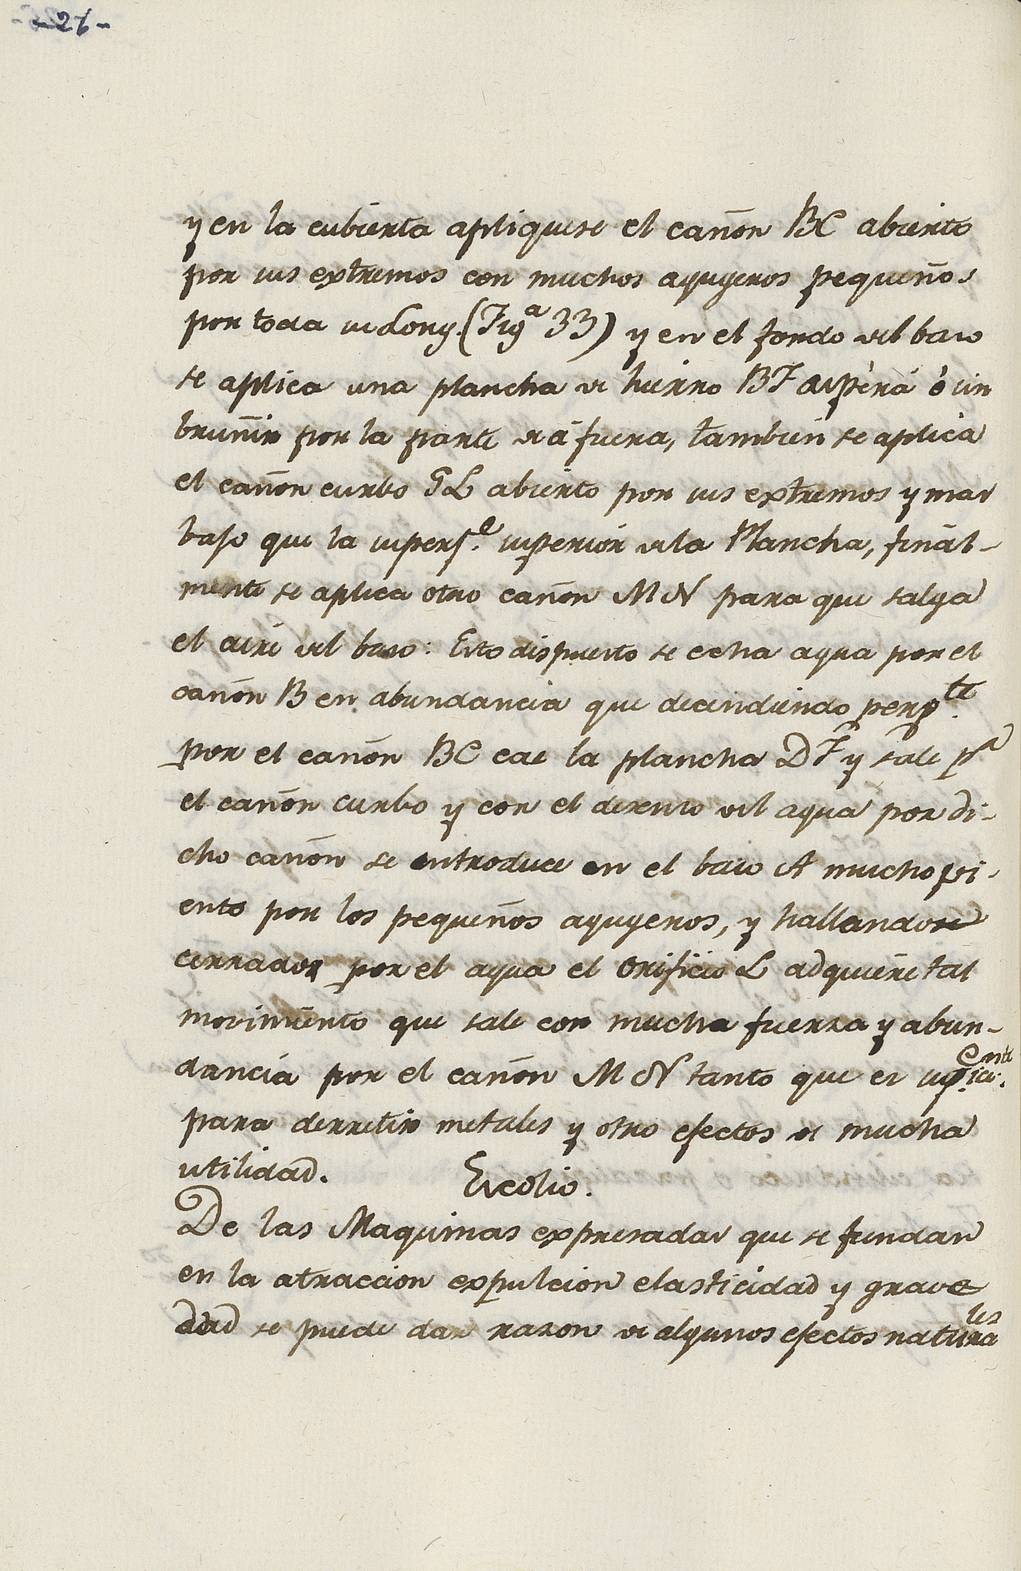 -26-
y en la cubierta apliquese el cañon BC abierto
por sus extremos con muchos agugeros pequeños
por toda su Long. (Figª 33) y en el fondo del baso
se aplica una plancha de hierro BF aspera ó sin
bruñir por la parte de á fuera, tambien se aplica
el cañon curbo GL abierto por sus extremos y mas
bajo que la supersᵉ. superior de la Plancha, final-
mente se aplica otro cañon MN para que salga
el aire del baso: Esto dispuesto se echa agua por el
cañon B en abundancia que decendiendo perpᵗᵉ.
por el cañon BC cae la plancha DF y sale pʳ
el cañon curbo y con el desenso del agua por di-
cho cañon se introduce en el baso A mucho vi-
ento por los pequeños agugeros, y hallando
cerrado por el agua el orificio L adquiere tal
movimiento que sale con mucha fuerza y abun-
dancia por el cañon MN tanto que es
para derretir metales y otro efectos de mucha
utilidad. Escolio.
De las Maquinas expresadas que se fundan
en la atraccion expulcion elasticidad y grave
dad se puede dar razon de algunos efectos naturales